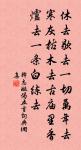 休去歇去一切萬年去
寒灰枯木去古廟里香
爐去一條白練去